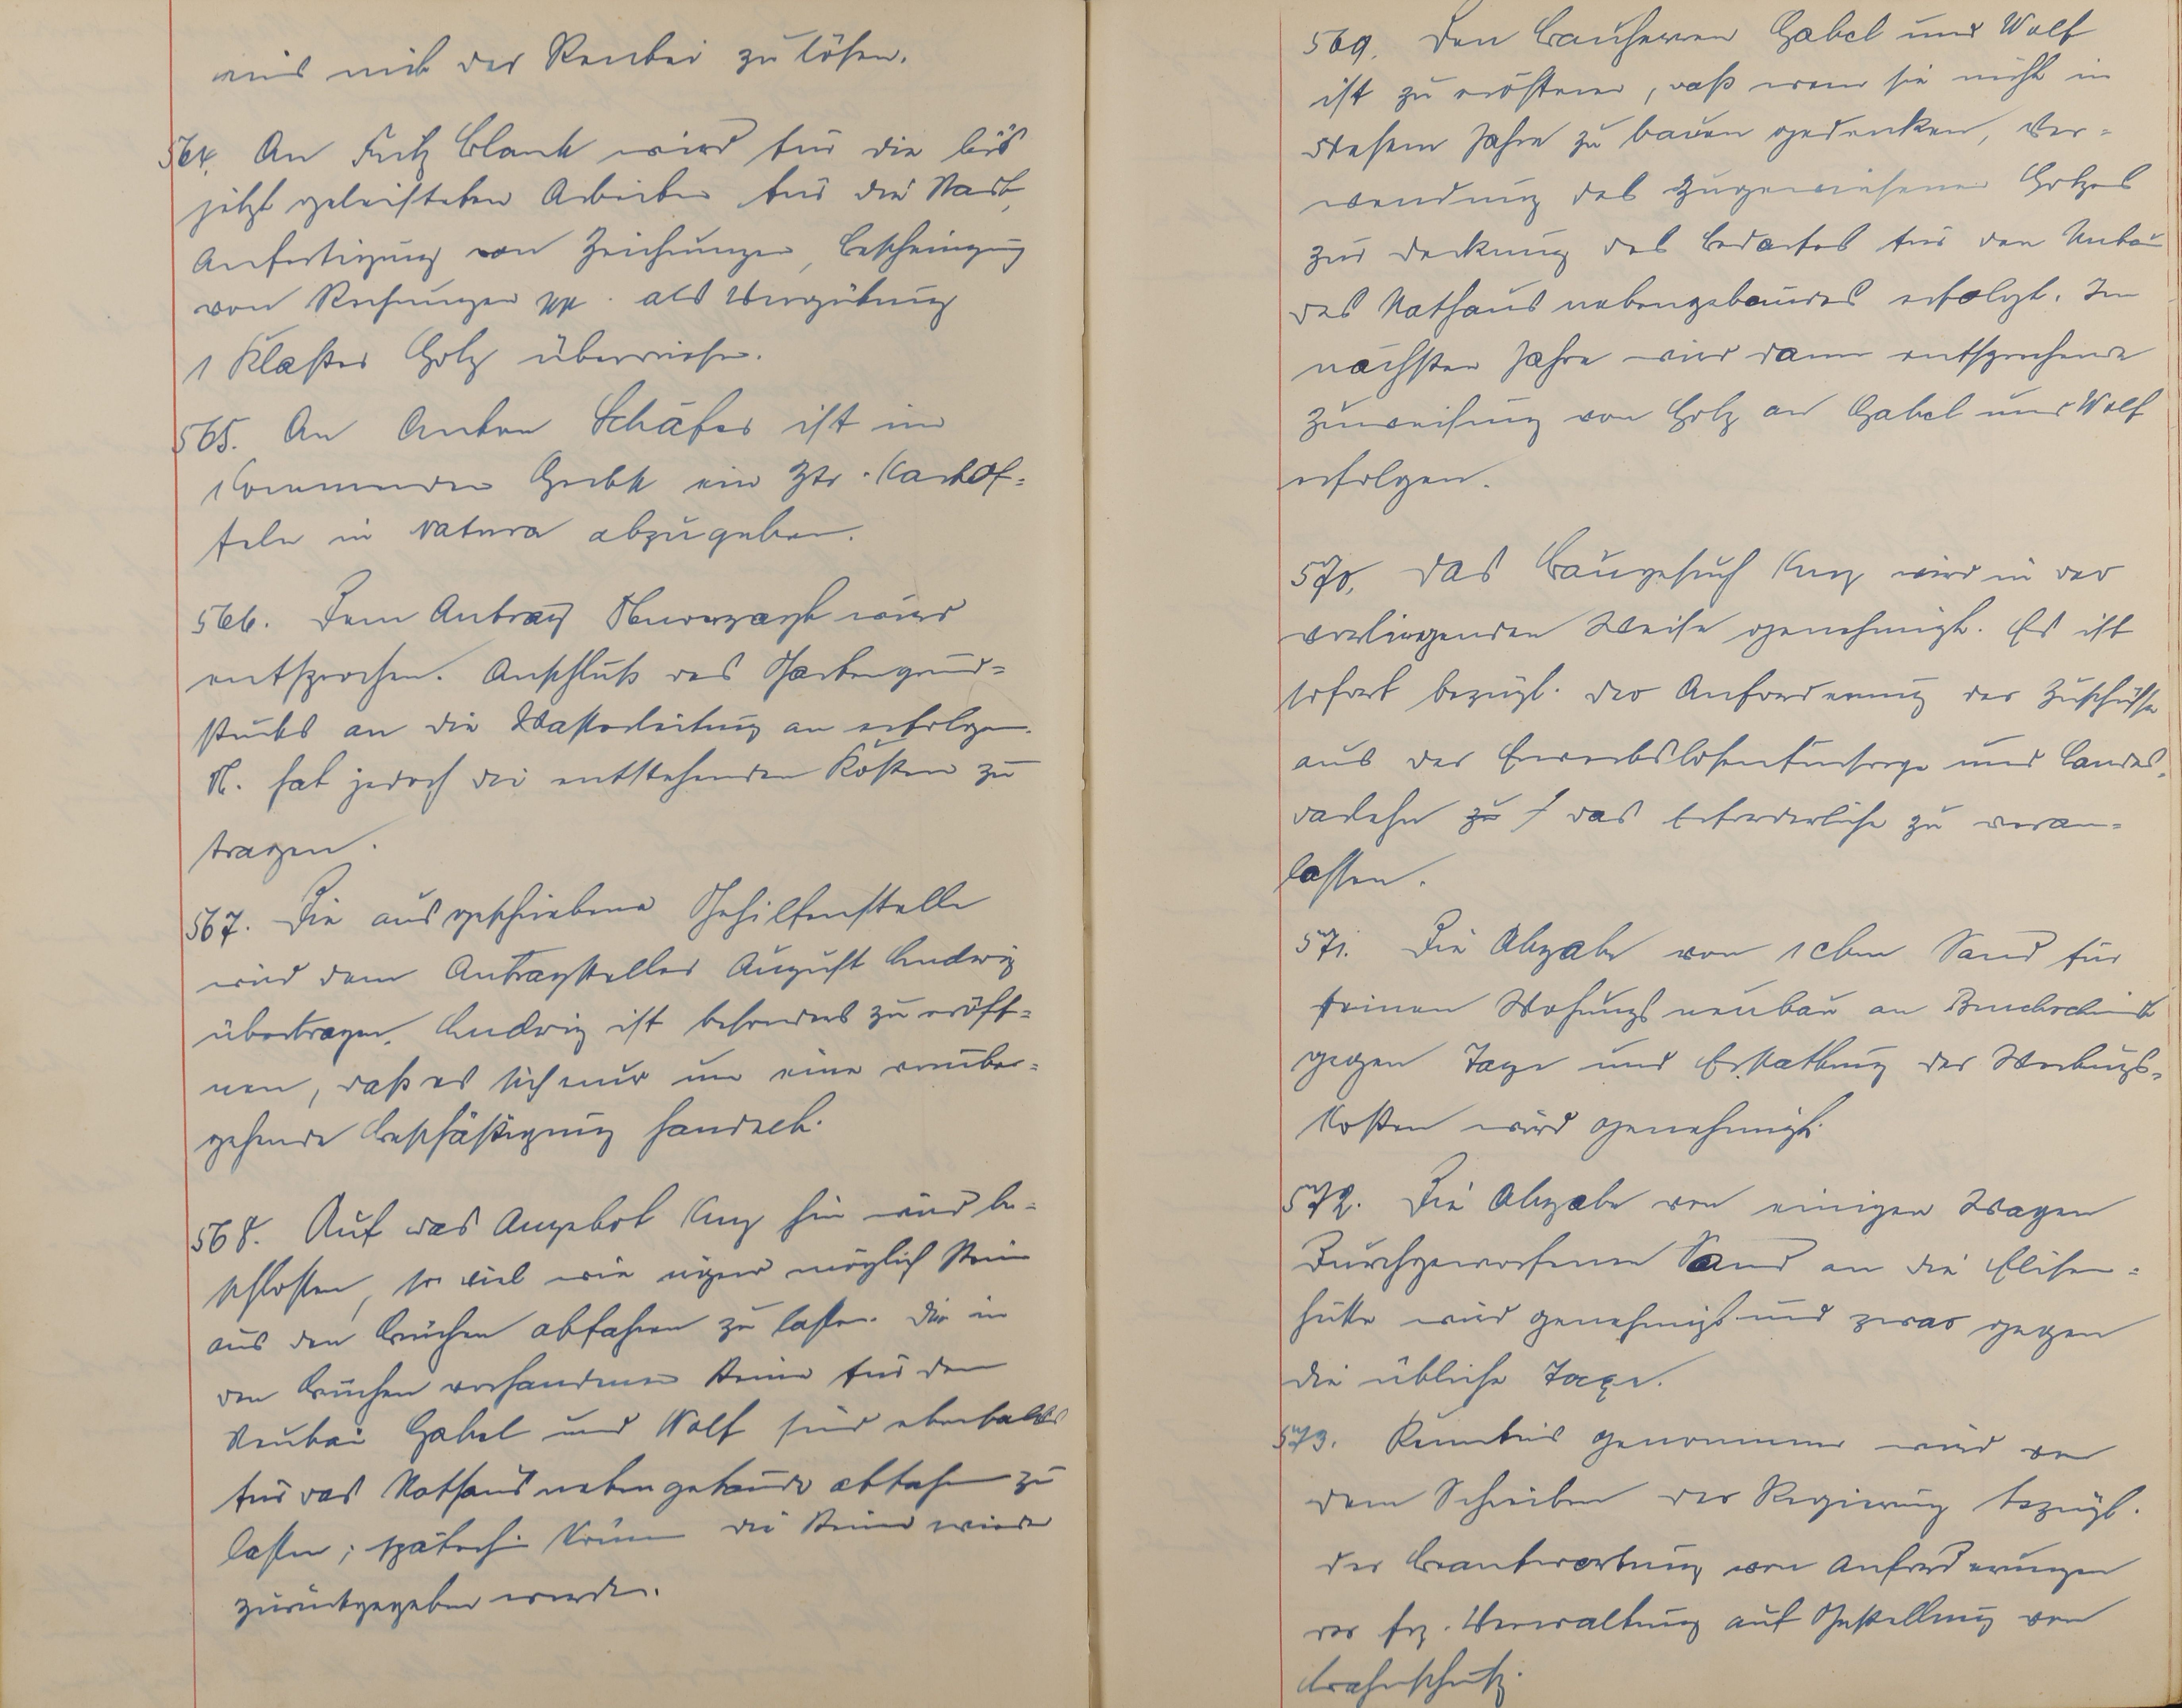 nis mit der Rentei zu lösen.
564. An Fritz Blank wird für die bis
jetzt geleisteten Arbeiten für die Stadt,
Anfertigung von Zeichnungen, Bescheinigung
von Rechnungen pp. als Vergütung
1 Klafter Holz überwiesen.
565. An Anton Schäfer ist im
kommenden Herbst ein Ztr. Kartof-
feln in natura abzugeben.
566. Dem Antrag wird
entsprochen. Anschluß des Gartengrund-
stücks an die Wasserleitung kann erfolgen.
N. hat jedoch die entstehenden Kosten zu
tragen.
567. Die ausgeschriebene Gehilfenstelle
wird dem Antragsteller August Ludwig
übertragen. Ludwig ist besonders zu eröff-
nen, daß es sich nur um eine vorüber-
gehende Beschäftigung handelt.
568. Auf das Angebot Kunz hin wird be-
schlossen, so viel wie irgend möglich Stein
aus den Brüchen abfahren zu lassen. Die in
den Brüchen vorhandenen Steine für den
Neubau Gabel und Wolf sind ebenfalls
für das Rathausnebengebäude abfahren zu
lassen; späterhin können die Steine wieder
zurückgegeben werden.
569. Den Bauherren Gabel und Wolf
ist zu eröffnen, daß wenn sie nicht in
diesem Jahre zu bauen gedenken, Ver-
wendung des zugewiesenen Holzes
zur Deckung des Bedarfes für den Umbau
des Rathausnebengebäudes erfolgt. Im
nächsten Jahre wird dann entsprechende
Zuweisung von Holz an Gabel und Wolf
erfolgen.
570. Das Baugesuch Kunz wird in der
vorliegenden Weise genehmigt. Es ist
sofort bezügl. der Anforderung der Zuschüsse
aus der Erwerbslosenfürsorge und Landes-
darlehn das Erforderliche zu veran-
lassen.
571. Die Abgabe von 1 cbm Sand für
seinen Wohnungsneubau an
gegen Taxe und Erstattung der Werbungs-
kosten wird genehmigt.
572. Die Abgabe von einigen Wagen
durchgeworfenen Sand an die Elisen-
hütte wird genehmigt und zwar gegen
die übliche Taxe.
573. Kenntnis genommen wird von
dem Schreiben der Regierung bezügl.
der Beantwortung von Anforderungen
der frz. Verwaltung auf Gestellung von
Bahnschutz.